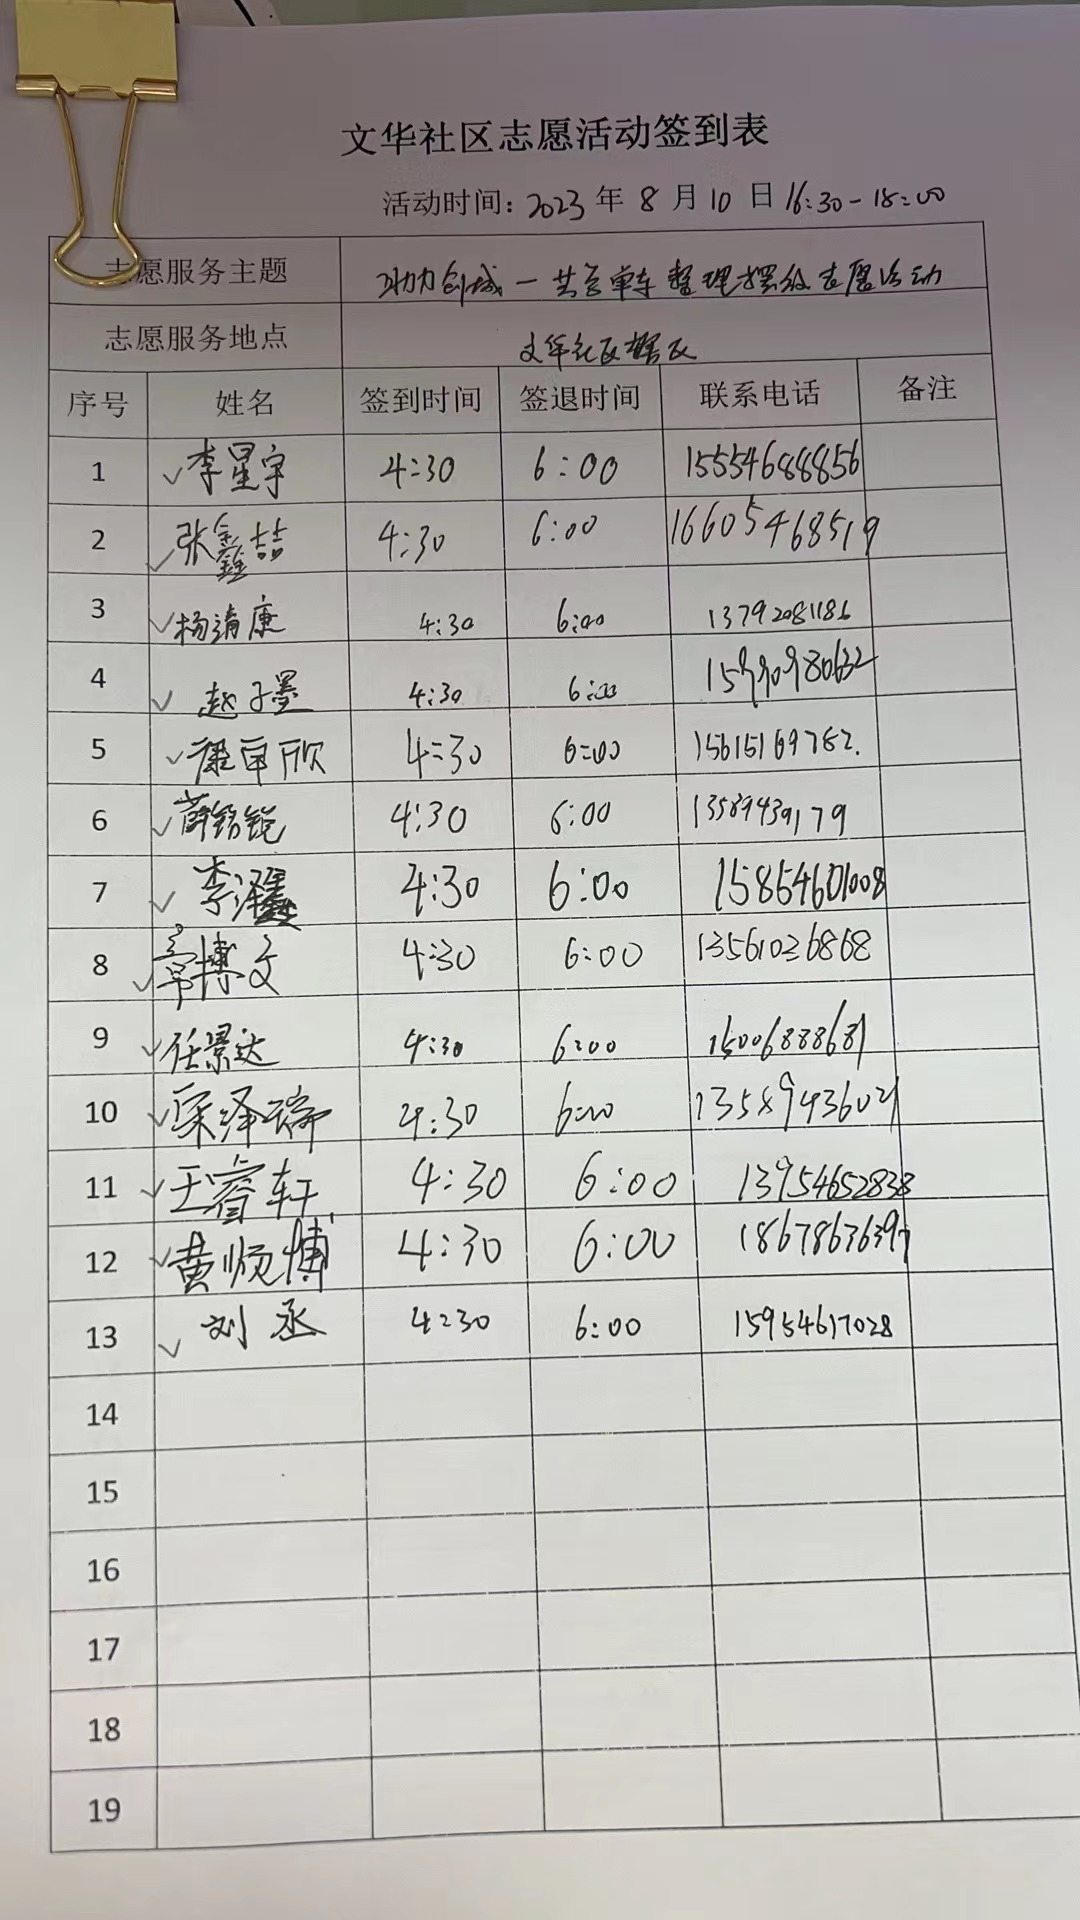 文华社区志愿活动签到表
活动时间: 2023 年 8 月 10 日 16:30-18:00
志愿服务主题 助力创城-共享单车整理摆放志愿活动
志愿服务地点 文华社区辖区
序号 姓名 签到时间 签退时间 联系电话 备注
1 李星宇 4:30 6:00 15554688856
2 张鑫喆 4:30 6:00 16605468519
3 杨清康 4:30 6:00 13792081186
4 赵子墨 4:30 6:00
5 4:30 6:00 15615169782.
6 4:30 6:00 13589439179
7 李泽鑫 4:30 6:00 15854601008
8 博文 4:30 6:00 13561036868
9 任景达 4:30 6:00 15006888681
10 梁泽瑞 4:30 6:00 13589436021
11 王睿轩 4:30 6:00 13954652838
12 黄顺博 4:30 6:00 18678636397
13 刘丞 4:30 6:00 15954617028
14
15
16
17
18
19